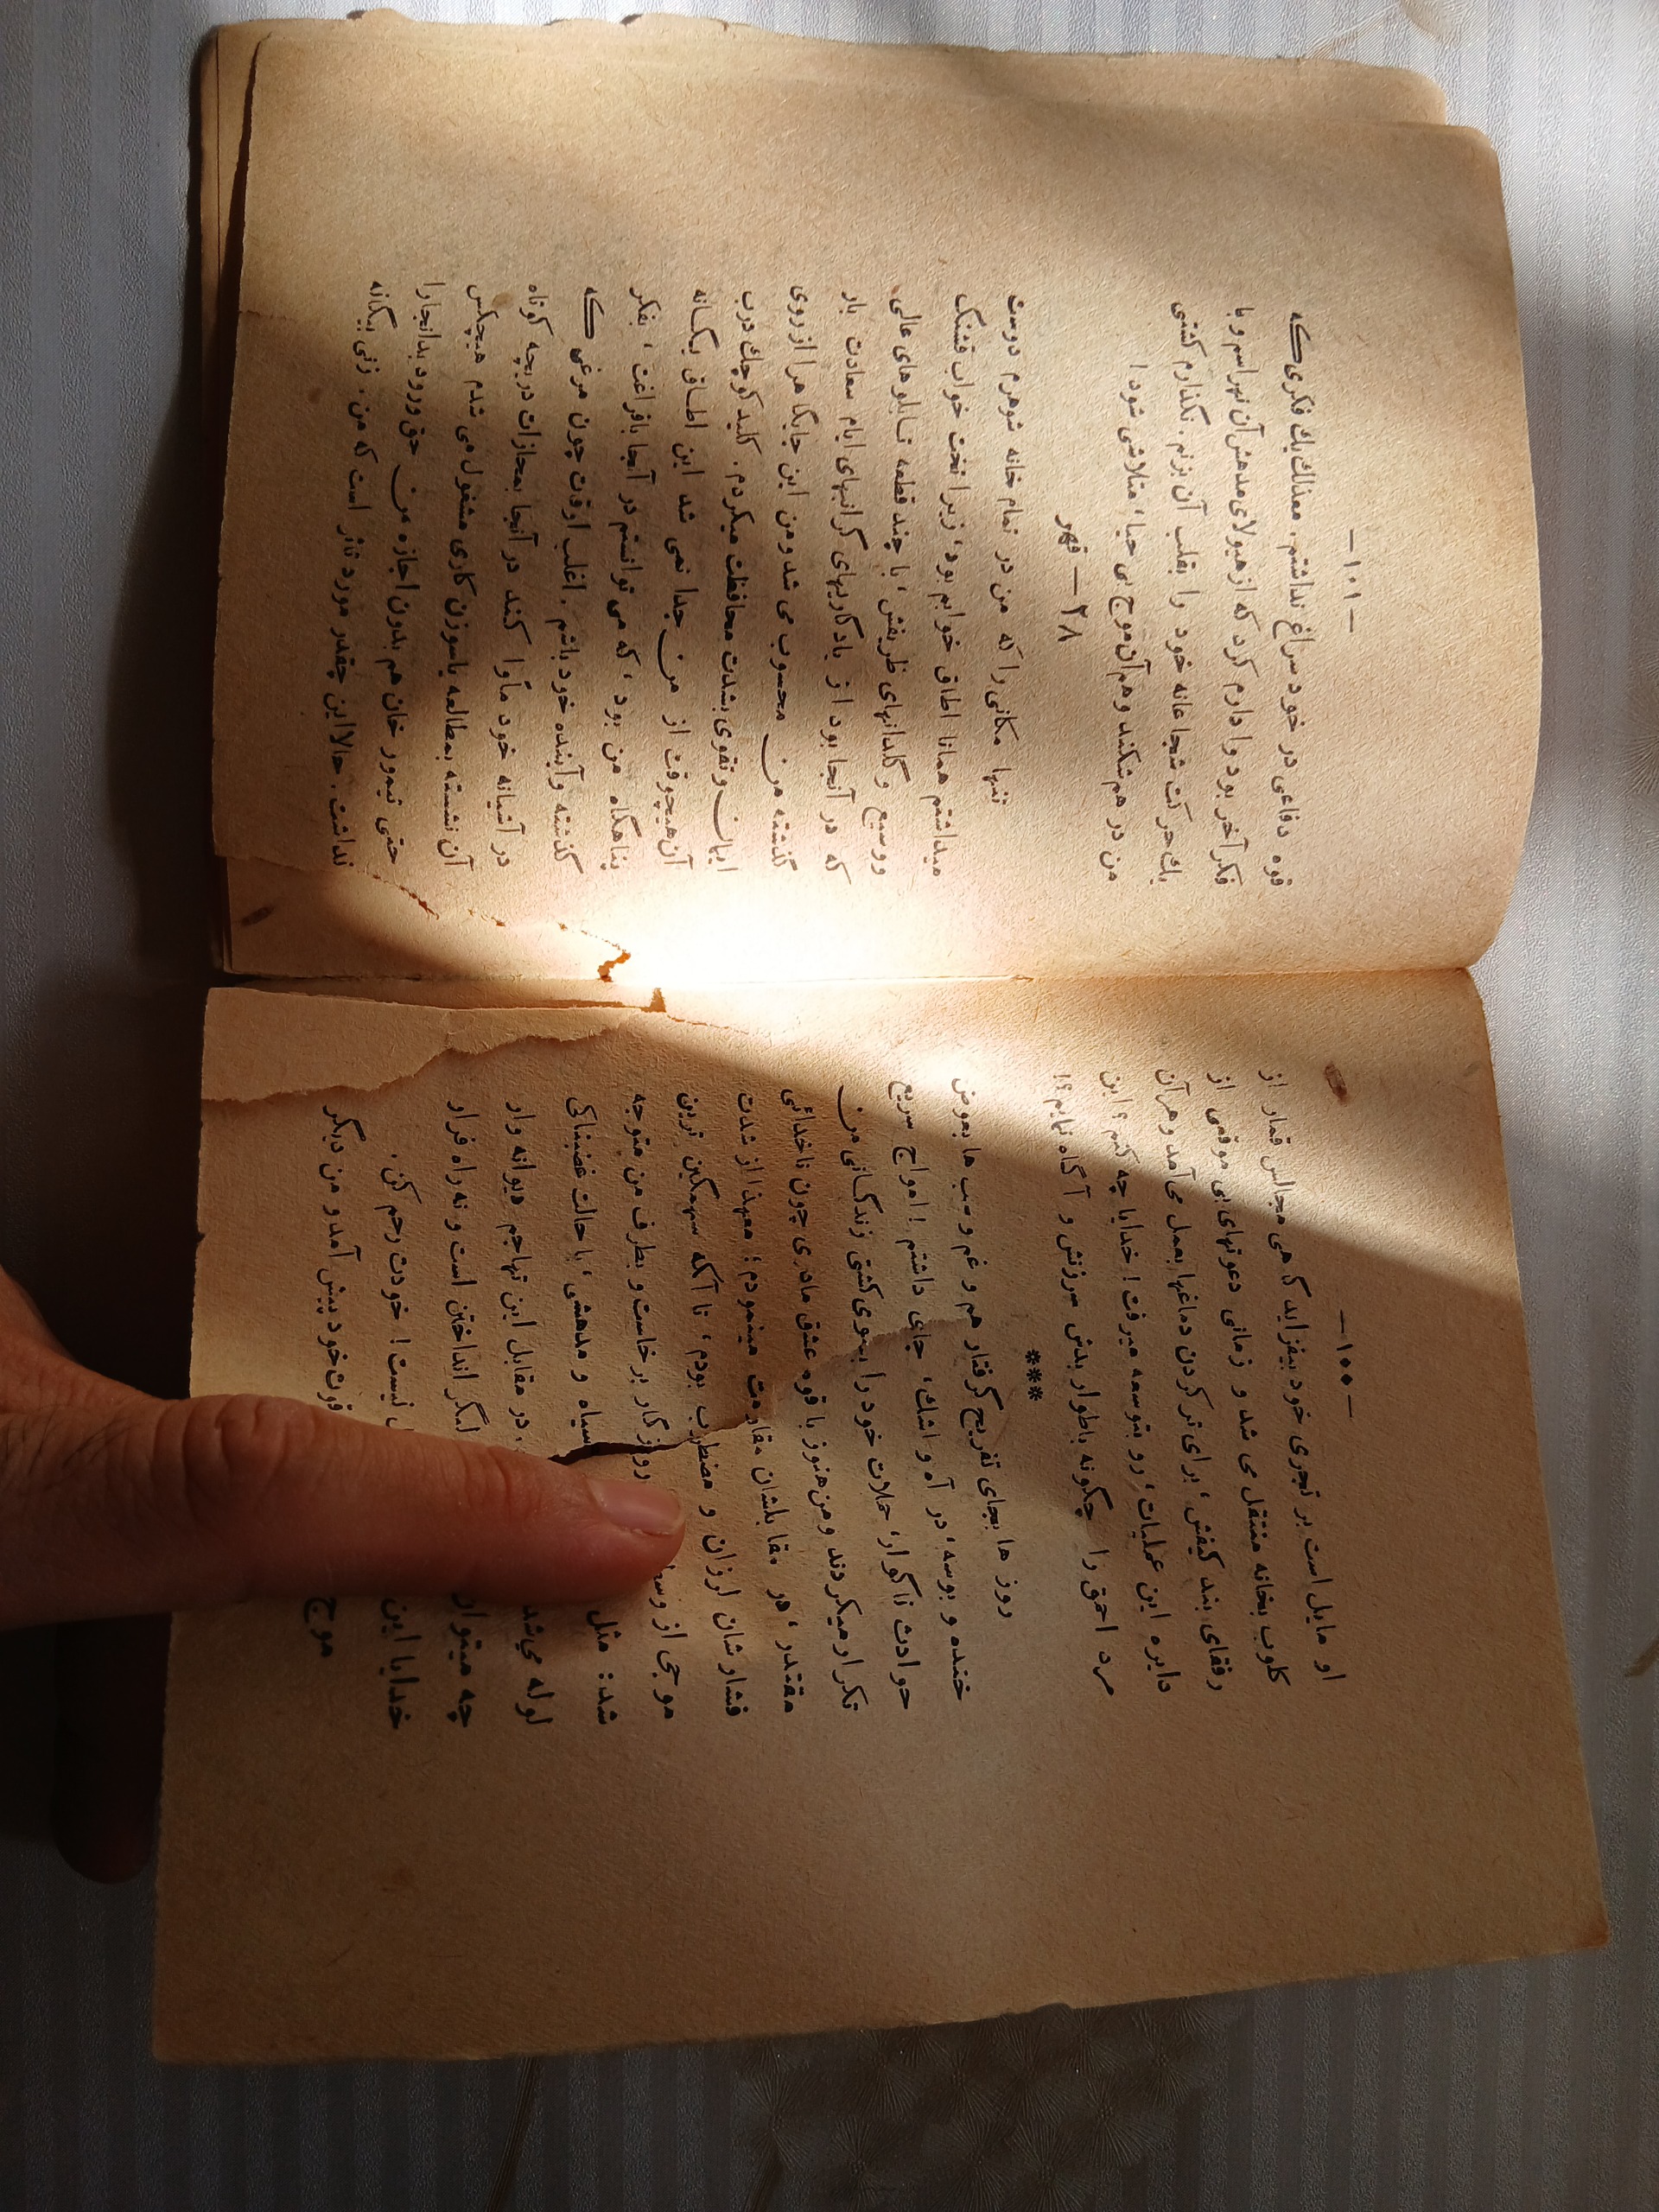 — ۱۰۰ —
او مایل است بر تجری خود بیفزاید گاهی مجالس قمار از
کلوب بخانه منتقل می شد و زمانی دعوتهای بی موقعی از
رفقای بند کیفش، برای تر کردن دماغها بعمل می آمد و هر آن
دایره این عملیات، رو بتوسعه میرفت! خدایا چه کنم؟ این
مرد احمق را چگونه باطوار بدش سرزنش و آگاه نمایم؟!
***
روز ها بجای تفریح گرفتار هم و غم و شب ها بعوض
خنده و بوسه، در آه و اشك، جای داشتم! امواج سریع
حوادث ناگوار، حملات خود را بسوی کشتی زندگانی من
تکرار میکردند و من هنوز با قوه عشق مادری چون ناخدائی
مقتدر، در مقابلشان مقاومت مینمودم؛ معهذا از شدت
فشارشان لرزان و مضطرب بودم، تا آنکه سهمگین ترین
موجی از وسط روزگار برخاست و بطرف من متوجه
شد: مثل سیاه و مدهشی، با حالت غضبناکی
لوله میشد در مقابل این تهاجم دیوانه وار
چه میتوان لنگر انداختن است و نه راه فرار
خدایا این نیست! خودت رحم کن.
موج قوت خود پیش آمد و من دیگر
— ۱۰۱ —
قوه دفاعی در خود سراغ نداشتم. معذالك یك فکری که
فکر آخر بود وادارم کرد که از هیولای مدهش آن نهراسم و با
یك حرکت شجاعانه خود را بقلب آن بزنم. نگذارم کشتی
من در هم شکند و هم آن موج بی حیا، متلاشی شود!
۲۸ — قهر
تنها مکانی را که من در تمام خانه شوهرم دوست
میداشتم همانا اطاق خوابم بود، زیرا تخت خواب قشنگ
و وسیع و گلدانهای ظریفش، با چند قطعه تابلوهای عالی
که در آنجا بود از یادگاریهای گرانبهای ایام سعادت بار
گذشته من محسوب می شد و من این جایگاه را از روی
ایمان و تقوی بشدت محافظت میکردم. کلید کوچك درب
آن هیچوقت از من جدا نمی شد این اطاق یگانه
پناهگاه من بود، که می توانستم در آنجا بافراغت، بفکر
گذشته و آینده خود باشم. اغلب اوقات چون مرغی که
در آشیانه خود مأوا کند در آنجا بمحازات دریچه کوتاه
آن نشسته بمطالعه یا سوزن کاری مشغول می شدم هیچکس
حتی تیمور خان هم بدون اجازه من حق ورود بدانجا را
نداشت. حالا این چقدر مورد تأثر است که من. زنی بیگانه